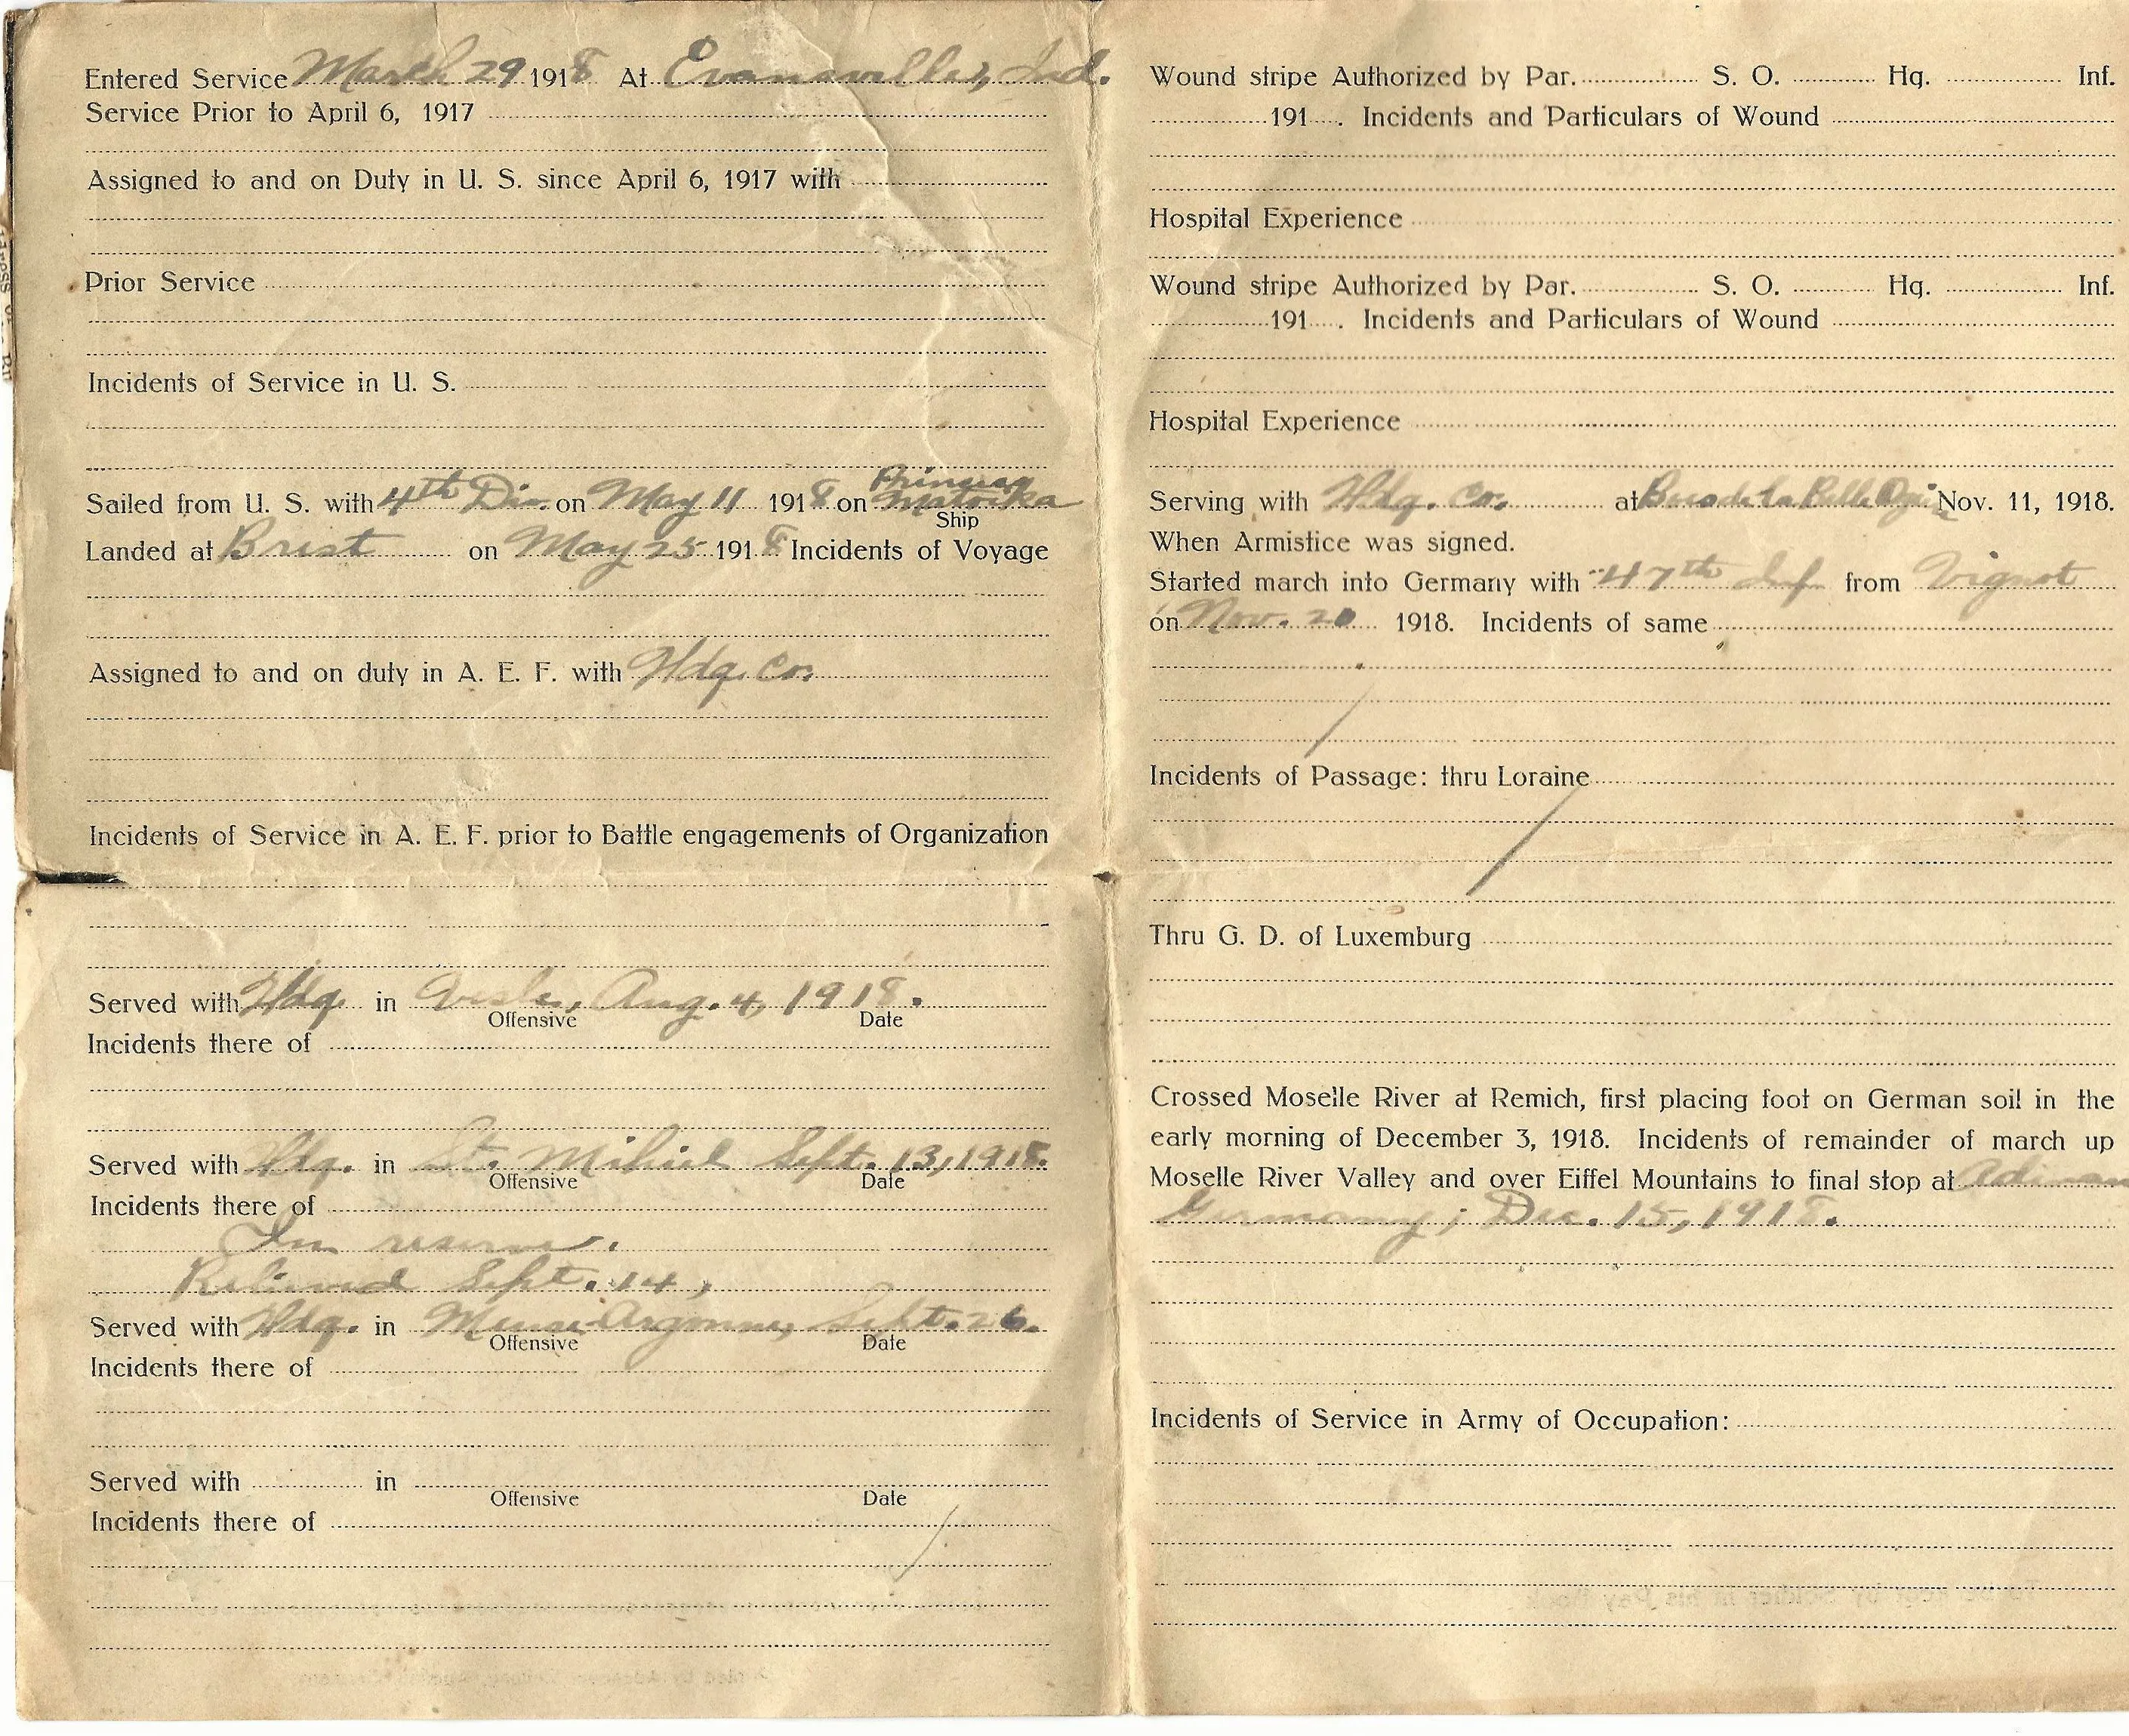 Entered Service March 29 1918 At Evansville, Ind.
Service Prior to April 6, 1917
Assigned to and on Duty in U. S. since April 6, 1917 with
Prior Service
Incidents of Service in U. S.
Sailed from U. S. with 4th Div. on May 11 1918 on Princess Matoika
Ship
Landed at Brest on May 25 1918 Incidents of Voyage
Assigned to and on duty in A. E. F. with Hdq. Co.
Incidents of Service in A. E. F. prior to Battle engagements of Organization
Served with Hdq. in Aug. 4, 1918.
Offensive Date
Incidents there of
Served with Hdq. in St. Mihiel Sept. 13, 1918.
Offensive Date
Incidents there of
In reserve.
Relieved Sept. 14,
Served with Hdq. in Meuse-Argonne, Sept. 26.
Offensive Date
Incidents there of
Served with in
Offensive Date
Incidents there of
Wound stripe Authorized by Par. S. O. Hq. Inf.
191 . Incidents and Particulars of Wound
Hospital Experience
Wound stripe Authorized by Par. S. O. Hq. Inf.
191 . Incidents and Particulars of Wound
Hospital Experience
Serving with Hdq. Co. at la Belle Nov. 11, 1918.
When Armistice was signed.
Started march into Germany with 47th Inf from Vignot
on Nov. 20 1918. Incidents of same
Incidents of Passage: thru Loraine
Thru G. D. of Luxemburg
Crossed Moselle River at Remich, first placing foot on German soil in the
early morning of December 3, 1918. Incidents of remainder of march up
Moselle River Valley and over Eiffel Mountains to final stop at
Germany, Dec. 15, 1918.
Incidents of Service in Army of Occupation: